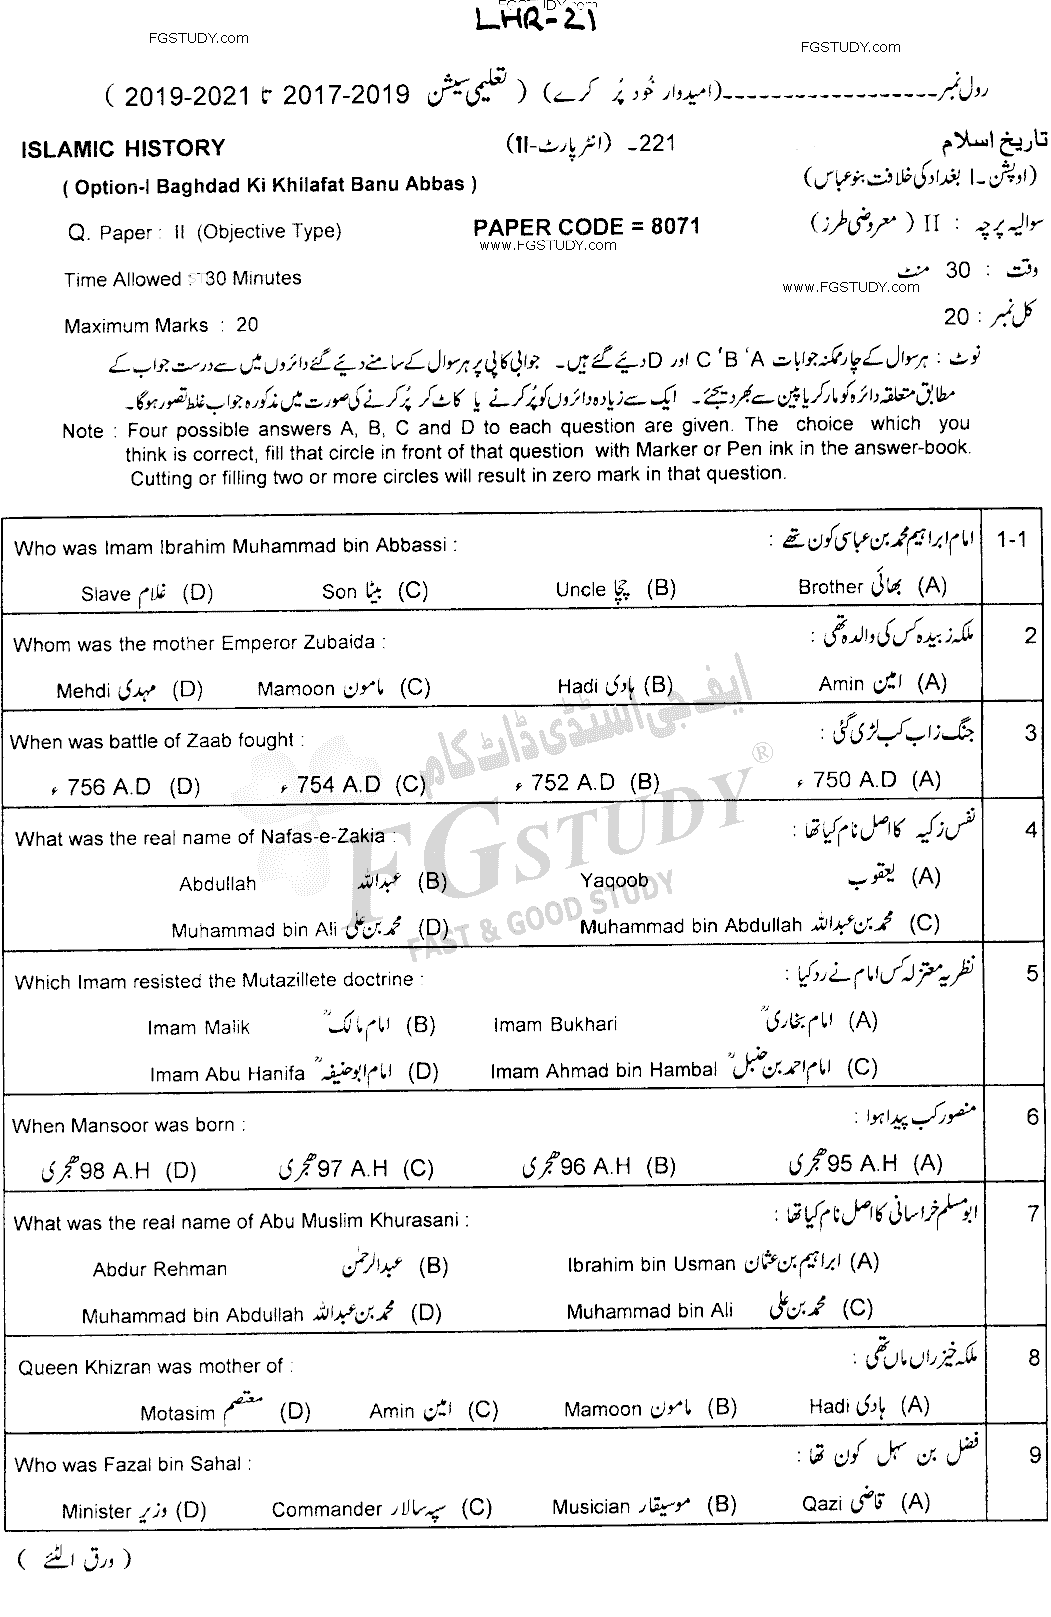 LHR-21
FGSTUDY.com
FGSTUDY.com
رول نمبر ــــــــــــــــــ (امیدوار خود پُر کرے) ( تعلیمی سیشن 2017-2019 تا 2019-2021 )
ISLAMIC HISTORY 221۔ (انٹر پارٹ-II) تاریخ اسلام
( Option-I Baghdad Ki Khilafat Banu Abbas ) (اوپشن ۔ I بغداد کی خلافت بنو عباس)
Q. Paper : II (Objective Type) PAPER CODE = 8071 سوالیہ پرچہ : II ( معروضی طرز )
www.FGSTUDY.com
Time Allowed : 30 Minutes وقت : 30 منٹ
www.FGSTUDY.com
Maximum Marks : 20 کل نمبر : 20
نوٹ : ہر سوال کے چار ممکنہ جوابات A ' B ' C اور D دیئے گئے ہیں۔ جوابی کاپی پر ہر سوال کے سامنے دیئے گئے دائروں میں سے درست جواب کے
مطابق متعلقہ دائرہ کو مارکر یا پین سے بھر دیجئے۔ ایک سے زیادہ دائروں کو پُر کرنے یا کاٹ کر پُر کرنے کی صورت میں مذکورہ جواب غلط تصور ہوگا۔
Note : Four possible answers A, B, C and D to each question are given. The choice which you
think is correct, fill that circle in front of that question with Marker or Pen ink in the answer-book.
Cutting or filling two or more circles will result in zero mark in that question.
Who was Imam Ibrahim Muhammad bin Abbassi : امام ابراہیم محمد بن عباسی کون تھے : 1-1
Slave غلام (D) Son بیٹا (C) Uncle چچا (B) Brother بھائی (A)
Whom was the mother Emperor Zubaida : ملکہ زبیدہ کس کی والدہ تھی : 2
Mehdi مہدی (D) Mamoon مامون (C) Hadi ہادی (B) Amin امین (A)
When was battle of Zaab fought : جنگ زاب کب لڑی گئی : 3
756 A.D ء (D) 754 A.D ء (C) 752 A.D ء (B) 750 A.D ء (A)
What was the real name of Nafas-e-Zakia : نفس زکیہ کا اصل نام کیا تھا : 4
Abdullah عبداللہ (B) Yaqoob یعقوب (A)
Muhammad bin Ali محمد بن علی (D) Muhammad bin Abdullah محمد بن عبداللہ (C)
Which Imam resisted the Mutazillete doctrine : نظریہ معتزلہ کس امام نے رد کیا : 5
Imam Malik امام مالکؒ (B) Imam Bukhari امام بخاریؒ (A)
Imam Abu Hanifa امام ابو حنیفہؒ (D) Imam Ahmad bin Hambal امام احمد بن حنبلؒ (C)
When Mansoor was born : منصور کب پیدا ہوا : 6
98 A.H ہجری (D) 97 A.H ہجری (C) 96 A.H ہجری (B) 95 A.H ہجری (A)
What was the real name of Abu Muslim Khurasani : ابو مسلم خراسانی کا اصل نام کیا تھا : 7
Abdur Rehman عبدالرحمٰن (B) Ibrahim bin Usman ابراہیم بن عثمان (A)
Muhammad bin Abdullah محمد بن عبداللہ (D) Muhammad bin Ali محمد بن علی (C)
Queen Khizran was mother of : ملکہ خیزراں ماں تھی : 8
Motasim معتصم (D) Amin امین (C) Mamoon مامون (B) Hadi ہادی (A)
Who was Fazal bin Sahal : فضل بن سہل کون تھا : 9
Minister وزیر (D) Commander سپہ سالار (C) Musician موسیقار (B) Qazi قاضی (A)
( ورق الٹئے )
ایف جی اسٹڈی ڈاٹ کام
FGSTUDY ®
FAST & GOOD STUDY